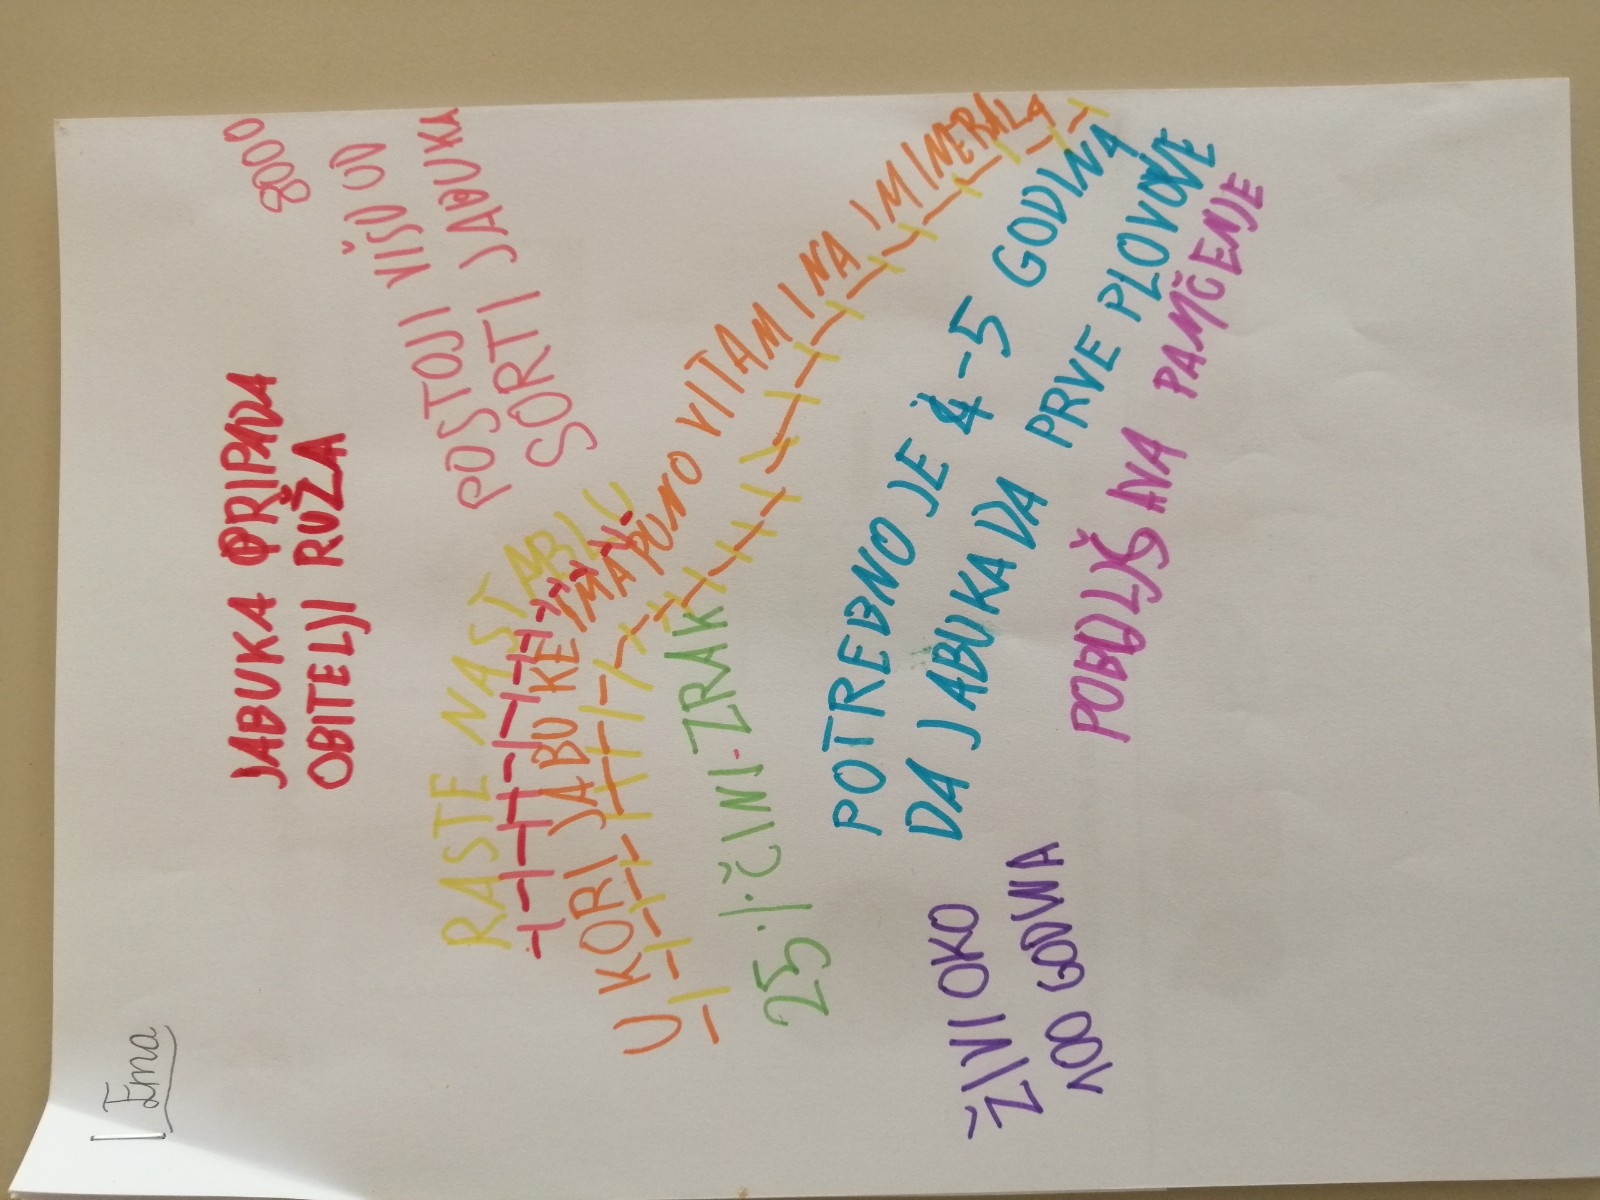 Ema
JABUKA PRIPADA
OBITELJI RUŽA
8000
POSTOJI VIŠU OD
SORTI JABUKA
RASTE NA STABLU
U KORI JABUKE IMA PUNO VITAMINA I MINERALA
25% ČINI ZRAK
POTREBNO JE 4-5 GODINA
DA JABUKA DA PRVE PLOVOVE
POBOLJŠAVA PAMČENJE
ŽIVI OKO
100 GODINA